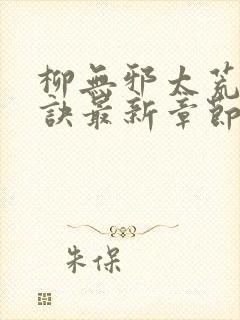 柳無邪太荒
訣最新章節
朱保